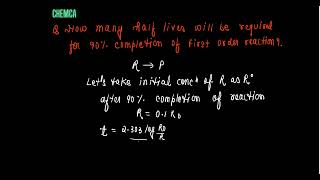 CHEMCA
Q How many half lives will be required
for 90% completion of first order reaction?.
R → P
Let's take initial concⁿ of R as R°
after 90% completion of reaction
R = 0.1 R0
t = 2.303 log R0/R